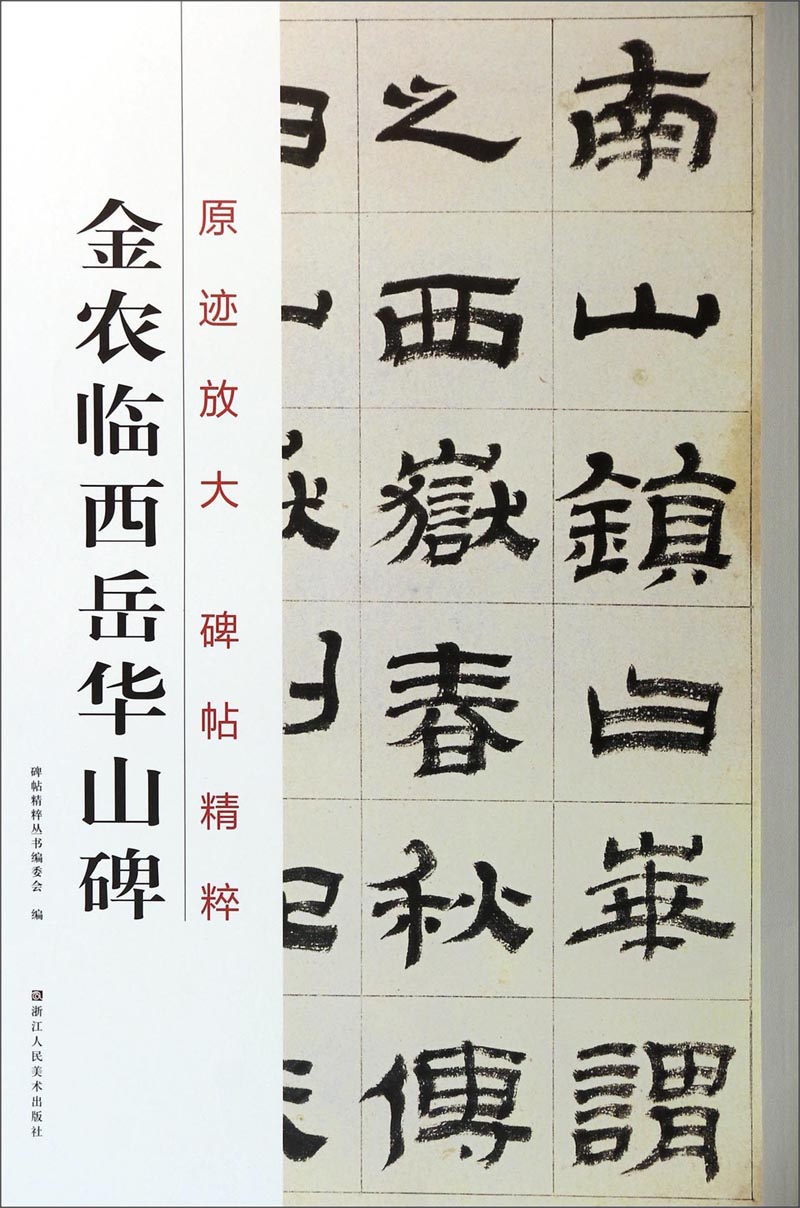 金农临西岳华山碑
原迹放大 碑帖精粹
碑帖精粹丛书编委会 编
浙江人民美术出版社
南山鎮曰崋謂
之西嶽春秋傳